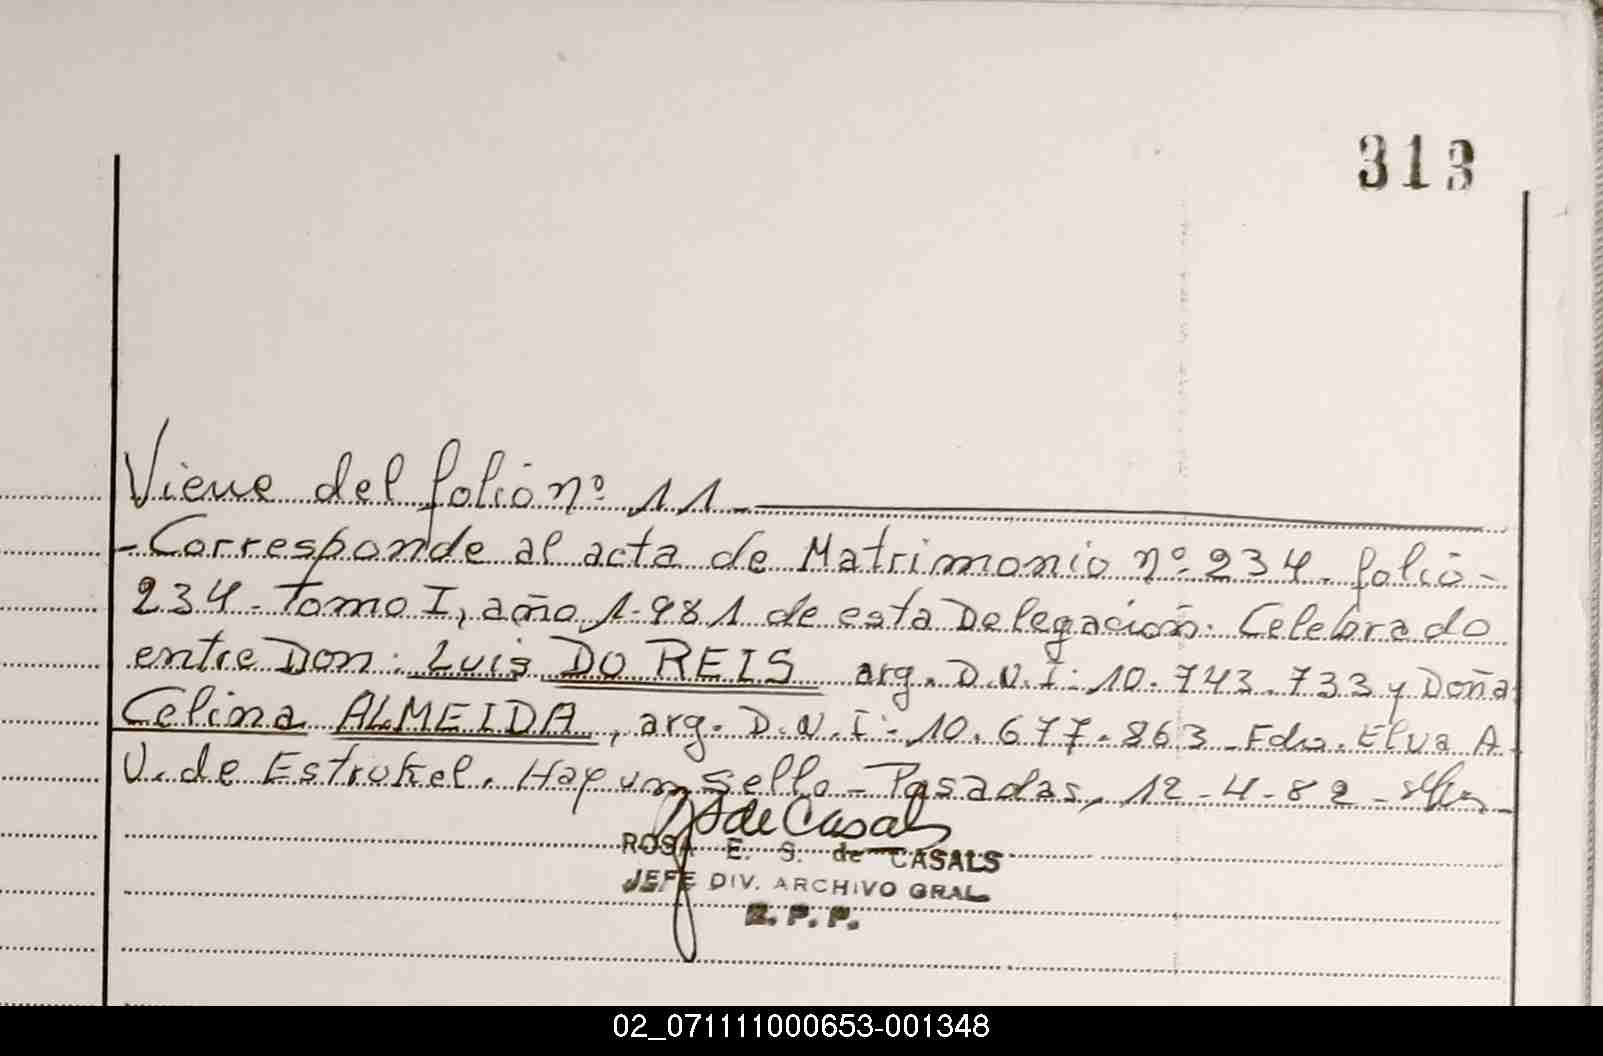 313
Viene del folio nº 11-
- Corresponde al acta de Matrimonio nº 234. folio-
234. Tomo I, año 1.981 de esta Delegación. Celebrado
entre Don: Luis DO REIS arg. D.N.I: 10.743.733 y Doña
Celina ALMEIDA, arg. D.N.I: 10.677.863. Fdo. Elva A.
V. de Estrokel. Hay un sello - Posadas, 12-4-82-
de Casals
ROSA E. S. de CASALS
JEFE DIV. ARCHIVO GRAL.
R. P. P.
02_071111000653-001348